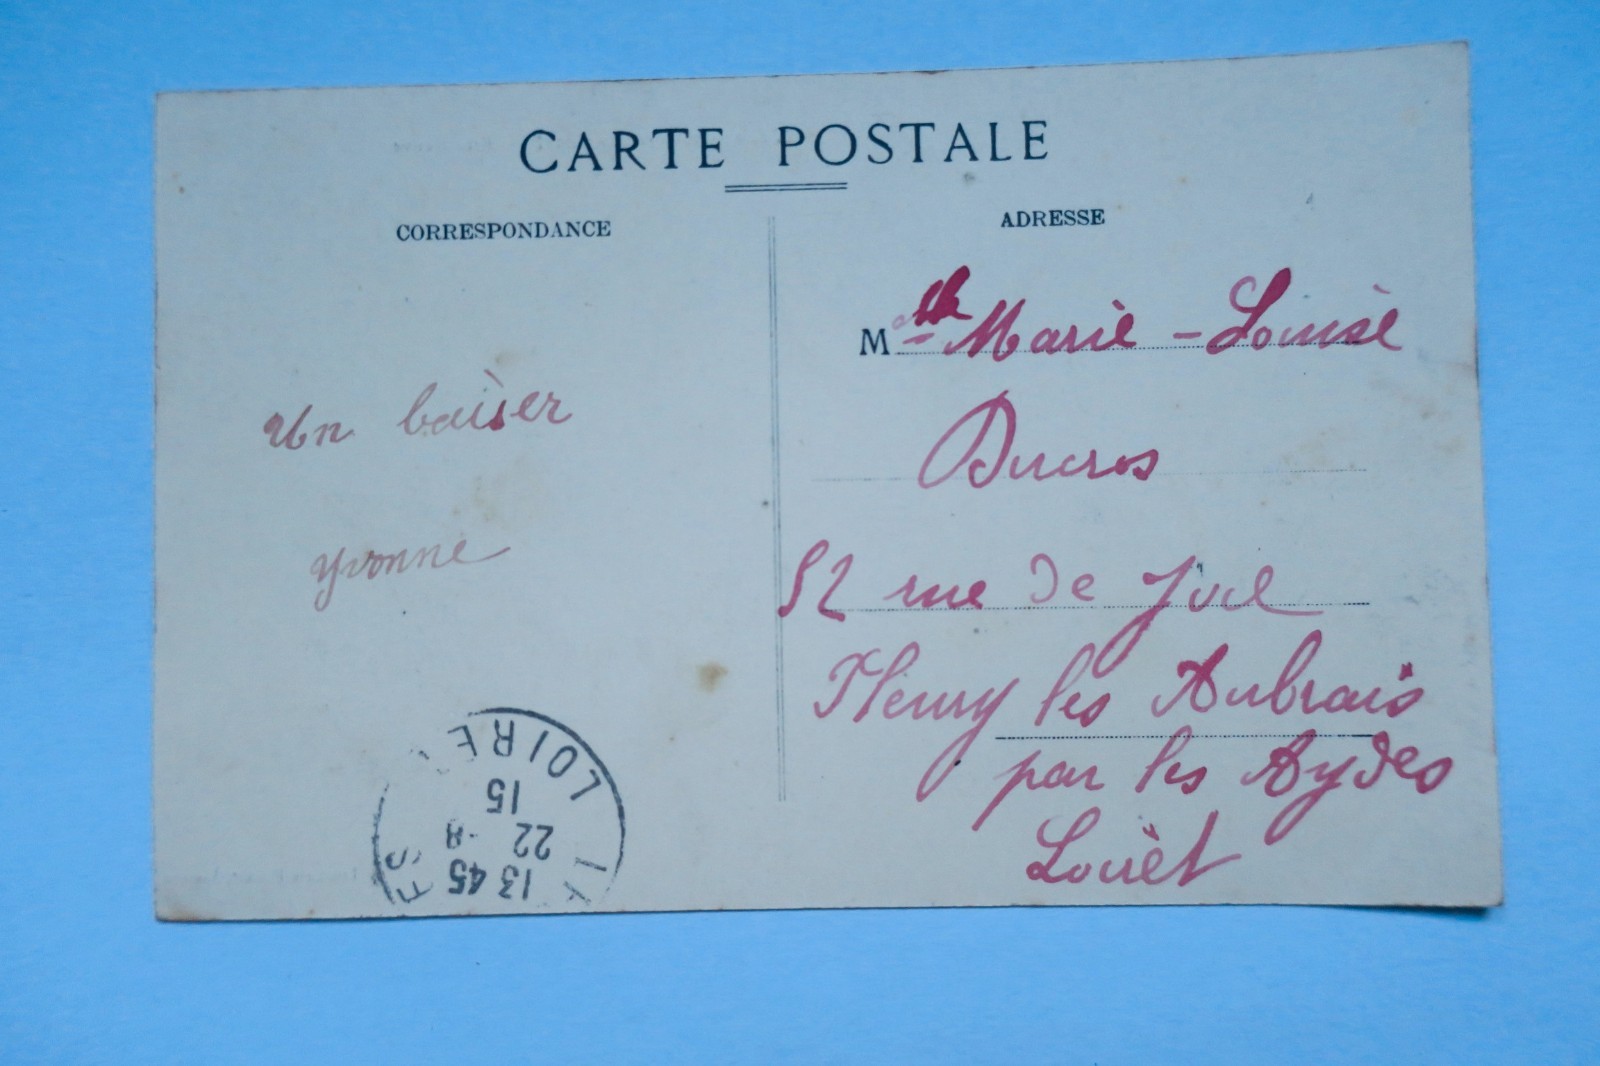 CARTE POSTALE
CORRESPONDANCE
Un baiser
Yvonne
ADRESSE
Mlle Marie-Louise
Ducros
52 rue de Joie
Fleury les Aubrais
par les Aydes
Loiret
LOIRE
15
22 -8
13 45